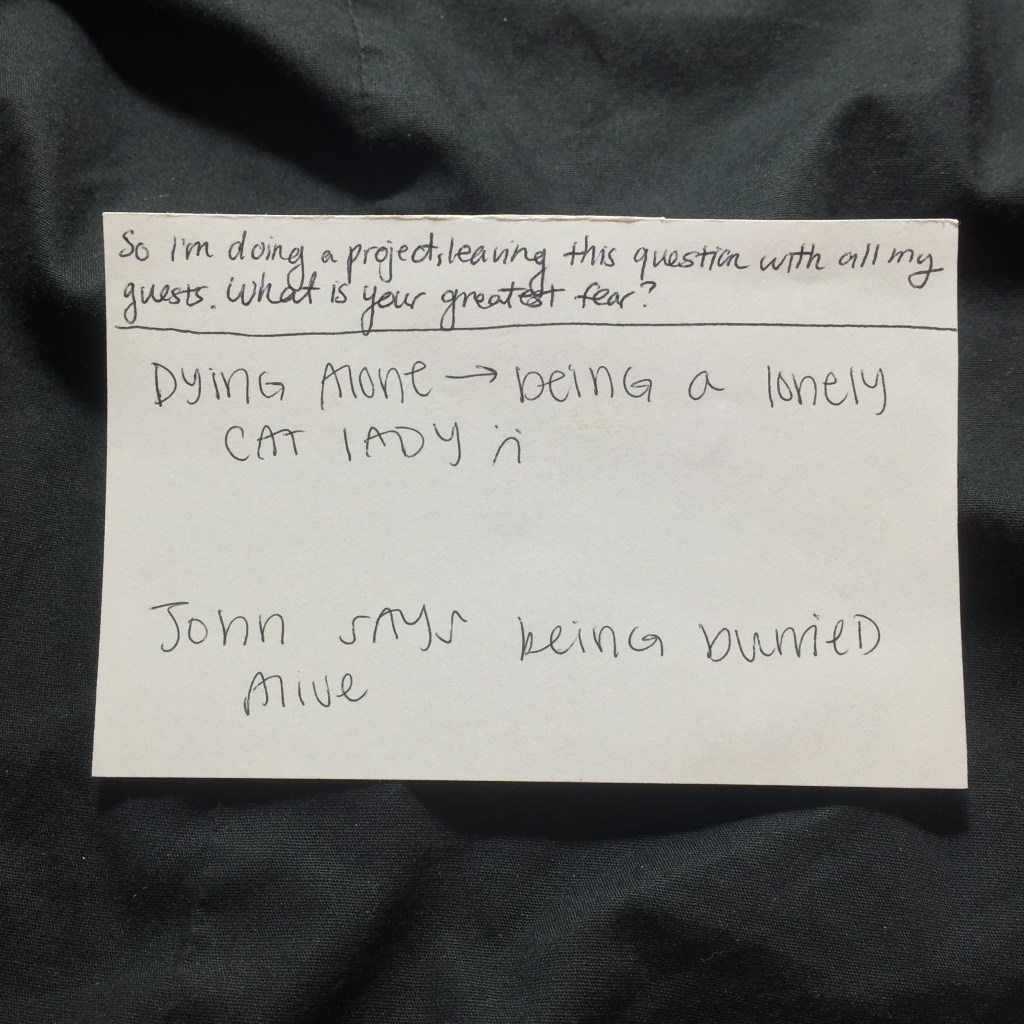 So I'm doing a project, leaving this question with all my
guests. What is your greatest fear?
DYING Alone → being a lonely
CAT LADY :(
John says being burried
Alive